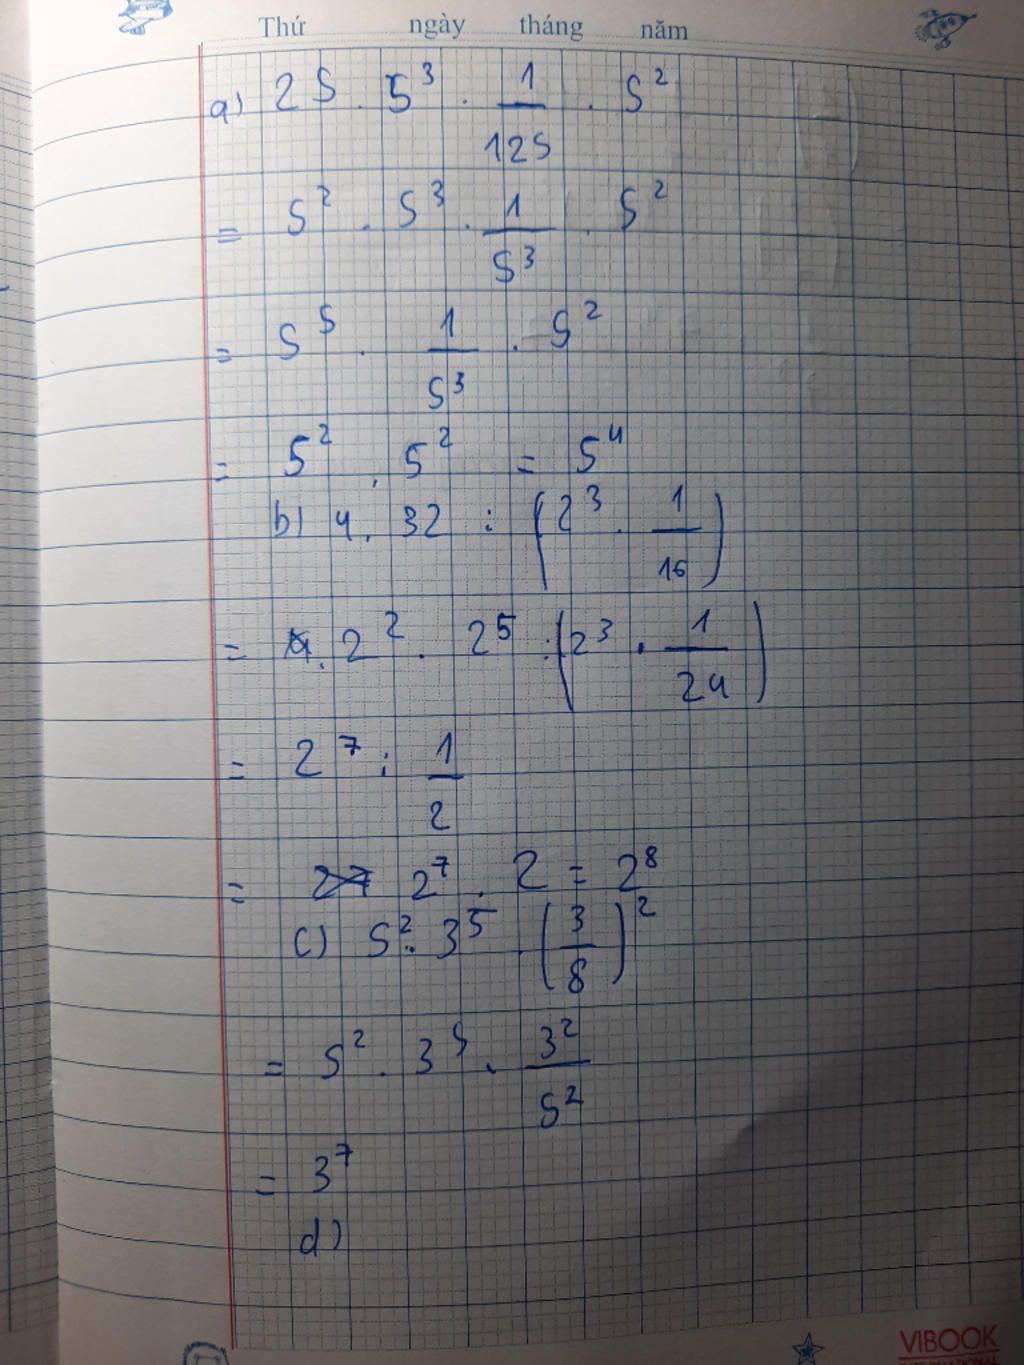 Thứ ngày tháng năm
a) 25 . 5³ . 1/125 . 5²
= 5² . 5³ . 1/5³ . 5²
= 5⁵ . 1/5³ . 5²
= 5² . 5² = 5⁴
b) 4 . 32 : (2³ . 1/16)
= 2² . 2⁵ : (2³ . 1/24)
= 2⁷ : 1/2
= 2⁷ . 2 = 2⁸
c) 5² . 3⁵ . (3/8)²
= 5² . 3⁵ . 3²/5²
= 3⁷
d)
VIBOOK